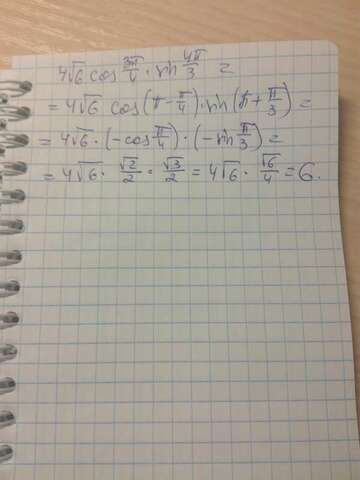 4√6 cos 3π/4 · sin 4π/3 =
= 4√6 cos(π - π/4) · sin(π + π/3) =
= 4√6 · (-cos π/4) · (-sin π/3) =
= 4√6 · √2/2 · √3/2 = 4√6 · √6/4 = 6.